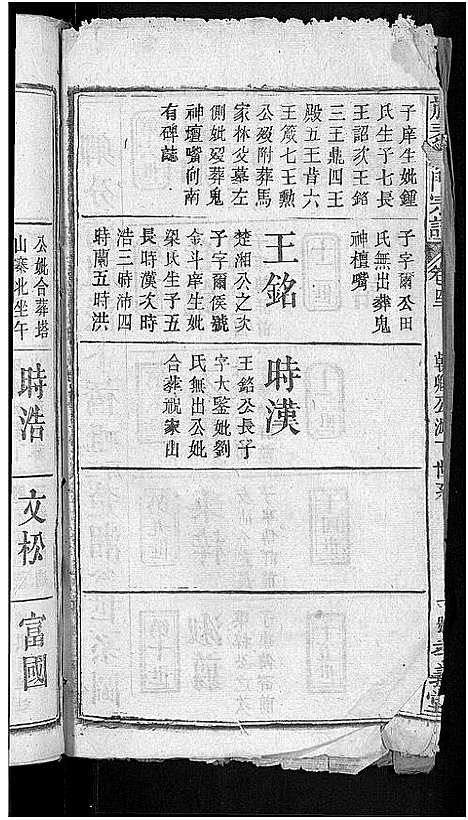 子庠生妣鍾
氏生子七長
王詔次王銘
三王鼎四王
殿五王昔六
王箴七王勲
公歿附葬馬
家林父墓左
側妣歿葬鬼
神壇嘴向南
有碑誌
子字爾公田
氏無出葬鬼
神檀嘴
王銘
楚湘公之次
子字爾侯號
金斗庠生妣
梁氏生子五
長時漢次時
浩三時沛四
時蘭五時洪
時漢
王銘公長子
字大鑒妣劉
氏無出公妣
合葬祝家山
公妣合葬塔
山寨北坐午
時浩
文松
富國